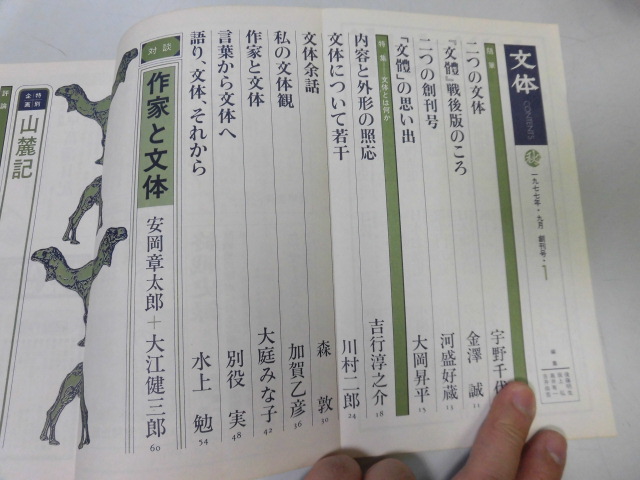 文体
秋
一九七七年・九月 創刊号・1
編集
随筆
二つの文体 宇野千代
『文體』戦後版のころ 金澤誠 11
二つの創刊号 河盛好蔵 13
「文體」の思い出 大岡昇平 15
特集 文体とは何か
内容と外形の照応 吉行淳之介 18
文体について若干 川村二郎 24
文体余話 森敦 30
私の文体観 加賀乙彦 36
作家と文体 大庭みな子 42
言葉から文体へ 別役実 48
語り、文体、それから 水上勉 54
対談
作家と文体 安岡章太郎+大江健三郎 60
特別企画
山麓記
評論